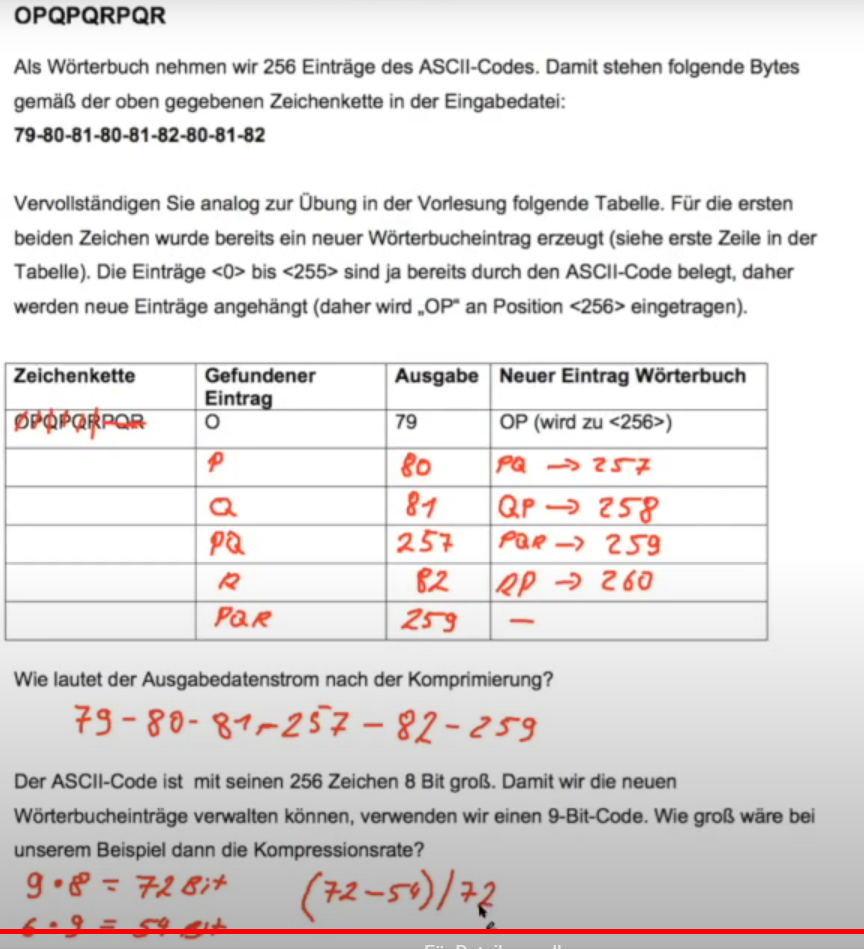 OPQPQRPQR
Als Wörterbuch nehmen wir 256 Einträge des ASCII-Codes. Damit stehen folgende Bytes
gemäß der oben gegebenen Zeichenkette in der Eingabedatei:
79-80-81-80-81-82-80-81-82
Vervollständigen Sie analog zur Übung in der Vorlesung folgende Tabelle. Für die ersten
beiden Zeichen wurde bereits ein neuer Wörterbucheintrag erzeugt (siehe erste Zeile in der
Tabelle). Die Einträge <0> bis <255> sind ja bereits durch den ASCII-Code belegt, daher
werden neue Einträge angehängt (daher wird „OP“ an Position <256> eingetragen).
Zeichenkette Gefundener Eintrag Ausgabe Neuer Eintrag Wörterbuch
OPQPQRPQR O 79 OP (wird zu <256>)
P 80 PQ → 257
Q 81 QP → 258
PQ 257 PQR → 259
R 82 RP → 260
PQR 259 —
Wie lautet der Ausgabedatenstrom nach der Komprimierung?
79 - 80 - 81 - 257 - 82 - 259
Der ASCII-Code ist mit seinen 256 Zeichen 8 Bit groß. Damit wir die neuen
Wörterbucheinträge verwalten können, verwenden wir einen 9-Bit-Code. Wie groß wäre bei
unserem Beispiel dann die Kompressionsrate?
9 · 8 = 72 Bit (72 - 54) / 72
6 · 9 = 54 Bit